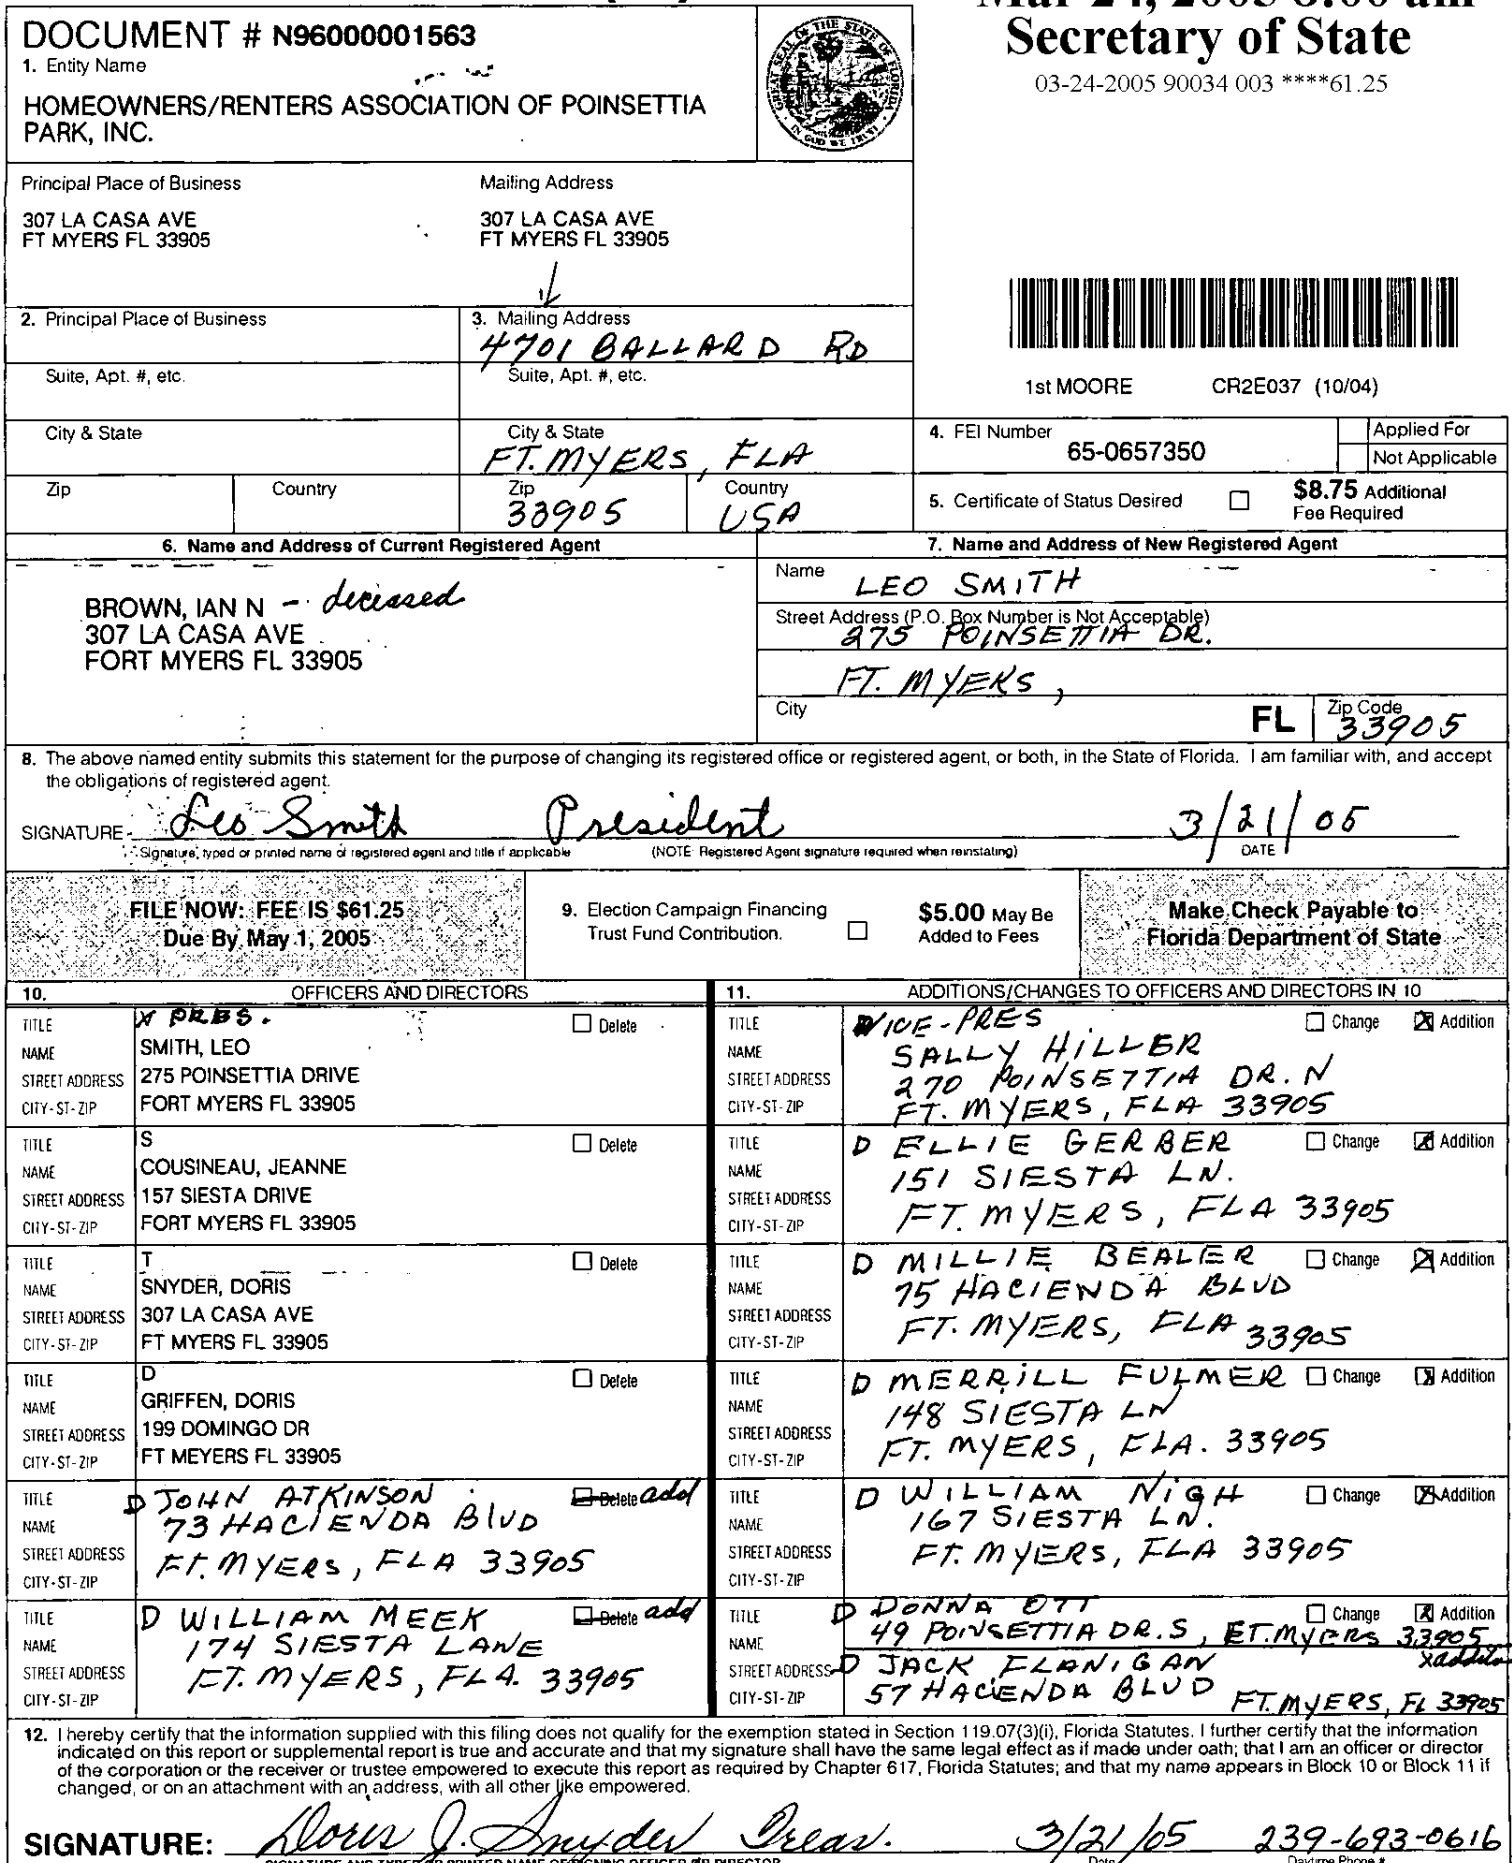 DOCUMENT # N96000001563
1. Entity Name
HOMEOWNERS/RENTERS ASSOCIATION OF POINSETTIA
PARK, INC.
GREAT SEAL OF THE STATE OF FLORIDA
IN GOD WE TRUST
Secretary of State
03-24-2005 90034 003 ****61.25
Principal Place of Business
307 LA CASA AVE
FT MYERS FL 33905
Mailing Address
307 LA CASA AVE
FT MYERS FL 33905
1st MOORE CR2E037 (10/04)
2. Principal Place of Business
3. Mailing Address
4701 BALLARD RD
Suite, Apt. #, etc.
Suite, Apt. #, etc.
City & State
City & State
FT. MYERS, FLA
Zip
Country
Zip
33905
Country
USA
4. FEI Number
65-0657350
Applied For
Not Applicable
5. Certificate of Status Desired
$8.75 Additional
Fee Required
6. Name and Address of Current Registered Agent
BROWN, IAN N - deceased
307 LA CASA AVE
FORT MYERS FL 33905
7. Name and Address of New Registered Agent
Name
LEO SMITH
Street Address (P.O. Box Number is Not Acceptable)
275 POINSETTIA DR.
FT. MYERS,
City
FL
Zip Code
33905
8. The above named entity submits this statement for the purpose of changing its registered office or registered agent, or both, in the State of Florida. I am familiar with, and accept
the obligations of registered agent.
SIGNATURE Leo Smith President 3/21/05
Signature, typed or printed name of registered agent and title if applicable (NOTE: Registered Agent signature required when reinstating) DATE
FILE NOW: FEE IS $61.25
Due By May 1, 2005
9. Election Campaign Financing
Trust Fund Contribution.
$5.00 May Be
Added to Fees
Make Check Payable to
Florida Department of State
10. OFFICERS AND DIRECTORS
TITLE X PRES. Delete
NAME SMITH, LEO
STREET ADDRESS 275 POINSETTIA DRIVE
CITY-ST-ZIP FORT MYERS FL 33905
TITLE S Delete
NAME COUSINEAU, JEANNE
STREET ADDRESS 157 SIESTA DRIVE
CITY-ST-ZIP FORT MYERS FL 33905
TITLE T Delete
NAME SNYDER, DORIS
STREET ADDRESS 307 LA CASA AVE
CITY-ST-ZIP FT MYERS FL 33905
TITLE D Delete
NAME GRIFFEN, DORIS
STREET ADDRESS 199 DOMINGO DR
CITY-ST-ZIP FT MEYERS FL 33905
TITLE D JOHN ATKINSON Delete add
NAME 73 HACIENDA BLVD
STREET ADDRESS FT. MYERS, FLA 33905
CITY-ST-ZIP
TITLE D WILLIAM MEEK Delete add
NAME 174 SIESTA LANE
STREET ADDRESS FT. MYERS, FLA. 33905
CITY-ST-ZIP
11. ADDITIONS/CHANGES TO OFFICERS AND DIRECTORS IN 10
TITLE VICE-PRES Change X Addition
NAME SALLY HILLER
STREET ADDRESS 270 POINSETTIA DR. N
CITY-ST-ZIP FT. MYERS, FLA 33905
TITLE D ELLIE GERBER Change X Addition
NAME 151 SIESTA LN.
STREET ADDRESS FT. MYERS, FLA 33905
CITY-ST-ZIP
TITLE D MILLIE BEALER Change X Addition
NAME 75 HACIENDA BLVD
STREET ADDRESS FT. MYERS, FLA 33905
CITY-ST-ZIP
TITLE D MERRILL FULMER Change X Addition
NAME 148 SIESTA LN
STREET ADDRESS FT. MYERS, FLA. 33905
CITY-ST-ZIP
TITLE D WILLIAM NIGH Change X Addition
NAME 167 SIESTA LN.
STREET ADDRESS FT. MYERS, FLA 33905
CITY-ST-ZIP
TITLE D DONNA OTT Change X Addition
NAME 49 POINSETTIA DR. S, FT. MYERS 33905
STREET ADDRESS D JACK FLANIGAN X
CITY-ST-ZIP 57 HACIENDA BLVD FT. MYERS, FL 33905
12. I hereby certify that the information supplied with this filing does not qualify for the exemption stated in Section 119.07(3)(i), Florida Statutes. I further certify that the information
indicated on this report or supplemental report is true and accurate and that my signature shall have the same legal effect as if made under oath; that I am an officer or director
of the corporation or the receiver or trustee empowered to execute this report as required by Chapter 617, Florida Statutes; and that my name appears in Block 10 or Block 11 if
changed, or on an attachment with an address, with all other like empowered.
SIGNATURE: Doris J. Snyder Treas. 3/21/05 239-693-0616